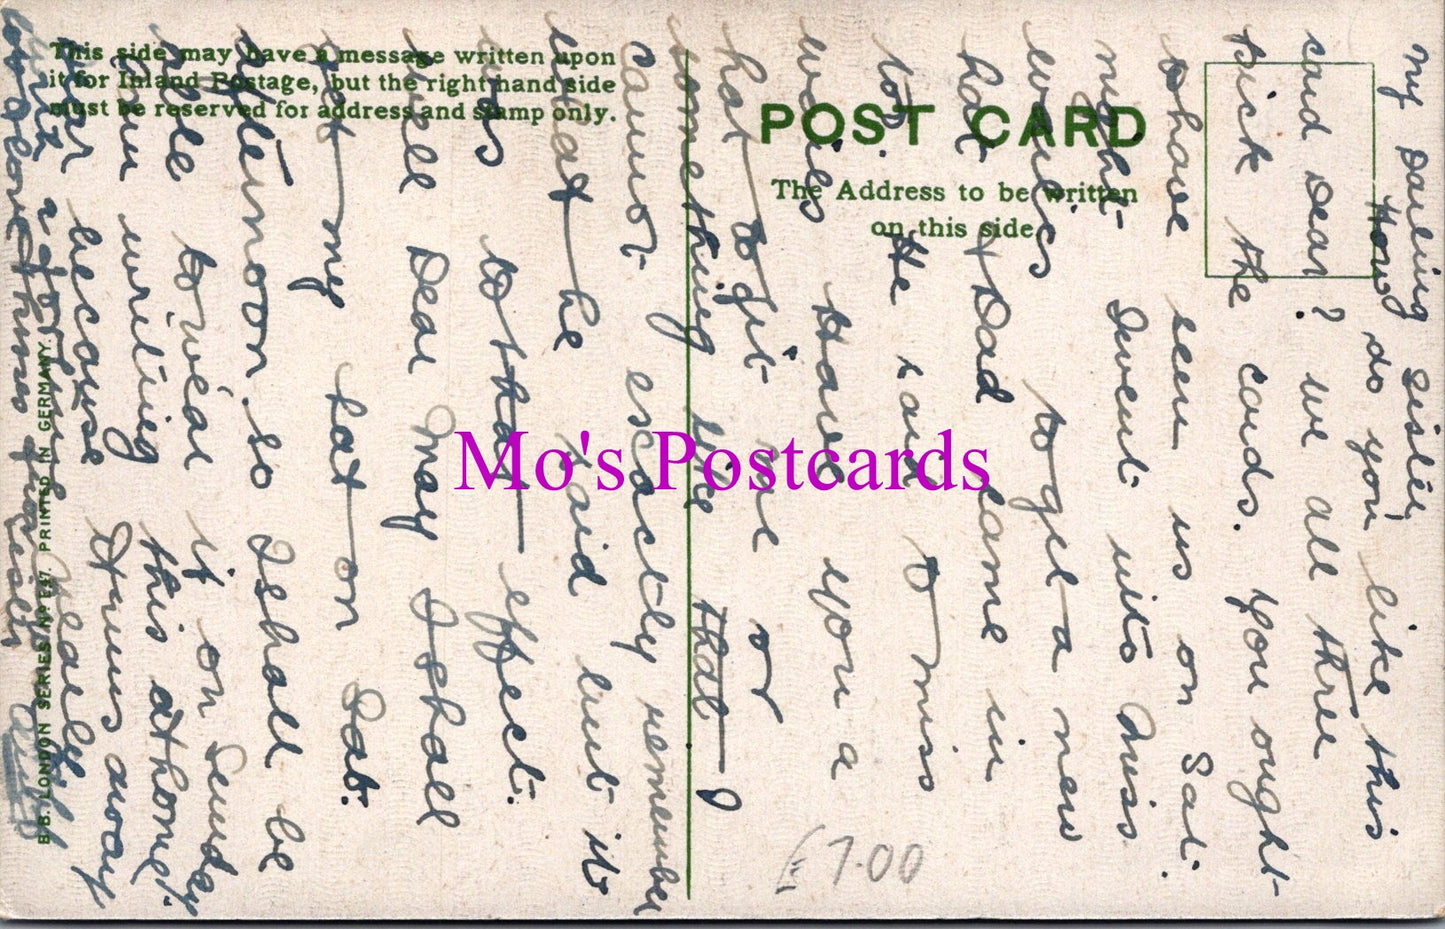 This side may have a message written upon
it for Inland Postage, but the right hand side
must be reserved for address and stamp only.
POST CARD
The Address to be written
on this side
B.B. LONDON SERIES No E87. PRINTED IN GERMANY.
Mo's Postcards
£7.00
My Darling Sister
How do you like this
card Dear? we all three
pick the cards. You ought
to have seen us on Sat.
night. I went into Miss
Willis to get a new
hat & Dad came in
to. He said to miss
Willis Have you a
hat to fit me or
something like that I
cannot escactly remember
what he said but it
was to that effect.
Well Dear May I shall
get my hat on Sat.
afternoon. so I shall be
able to wear it on Sunday
I am writing this at home.
because Hrms away